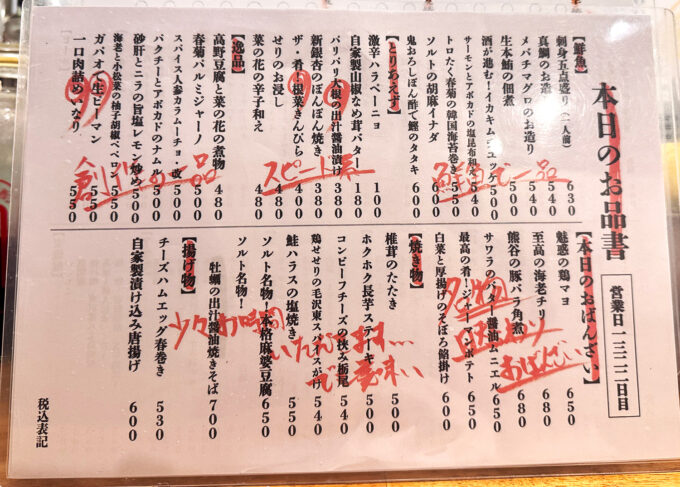 本日のお品書
営業日 一三二二日目
【鮮魚】
刺身五点盛り(一人前) 630
真鯛のお造り 540
メバチマグロのお造り 540
生本鮪の佃煮 500
酒が進む!イカキムチユッケ 500
サーモンとアボカドの塩昆布和え 540
トロたく春菊の韓国海苔巻き 550
ソルトの胡麻イナダ 500
鬼おろしぽん酢で鰹のタタキ 600
鮮魚で一品
【とりあえず】
激辛ハラペーニョ 100
自家製山椒なめ茸バター 180
パリパリ大根の出汁醤油漬け 380
新銀杏のぽんぽん焼き 380
ザ・肴!根菜きんぴら 400
せりのお浸し 480
菜の花の辛子和え 480
スピード一品
【逸品】
高野豆腐と菜の花の煮物 480
春菊パルミジャーノ 500
スパイス人参カラムーチョ・改 500
パクチーとアボカドのナムル 500
砂肝とニラの旨塩レモン炒め 500
海老と小松菜の柚子胡椒ペペロン 550
ガパオで生ピーマン 550
一口肉詰めいなり 550
創作の一品
【本日のおばんざい】
魅惑の鶏マヨ 650
至高の海老チリ 680
熊谷の豚バラ角煮 680
サワラのバター醤油ムニエル 650
最高の肴!ジャーマンポテト 650
白菜と厚揚げのそぼろ餡掛け 600
日替わり
おばんざい
【焼き物】
椎茸のたたき 500
ホクホク長芋ステーキ 500
コンビーフチーズの挟み栃尾 540
鶏せせりの毛沢東スパイスがけ 540
鮭ハラスの塩焼き 550
ソルト名物!本格麻婆豆腐 650
ソルト名物!
牡蠣の出汁醤油焼きそば 700
【揚げ物】
チーズハムエッグ春巻き 530
自家製漬け込み唐揚げ 600
少々お時間
いただきます…
で美味い
税込表記